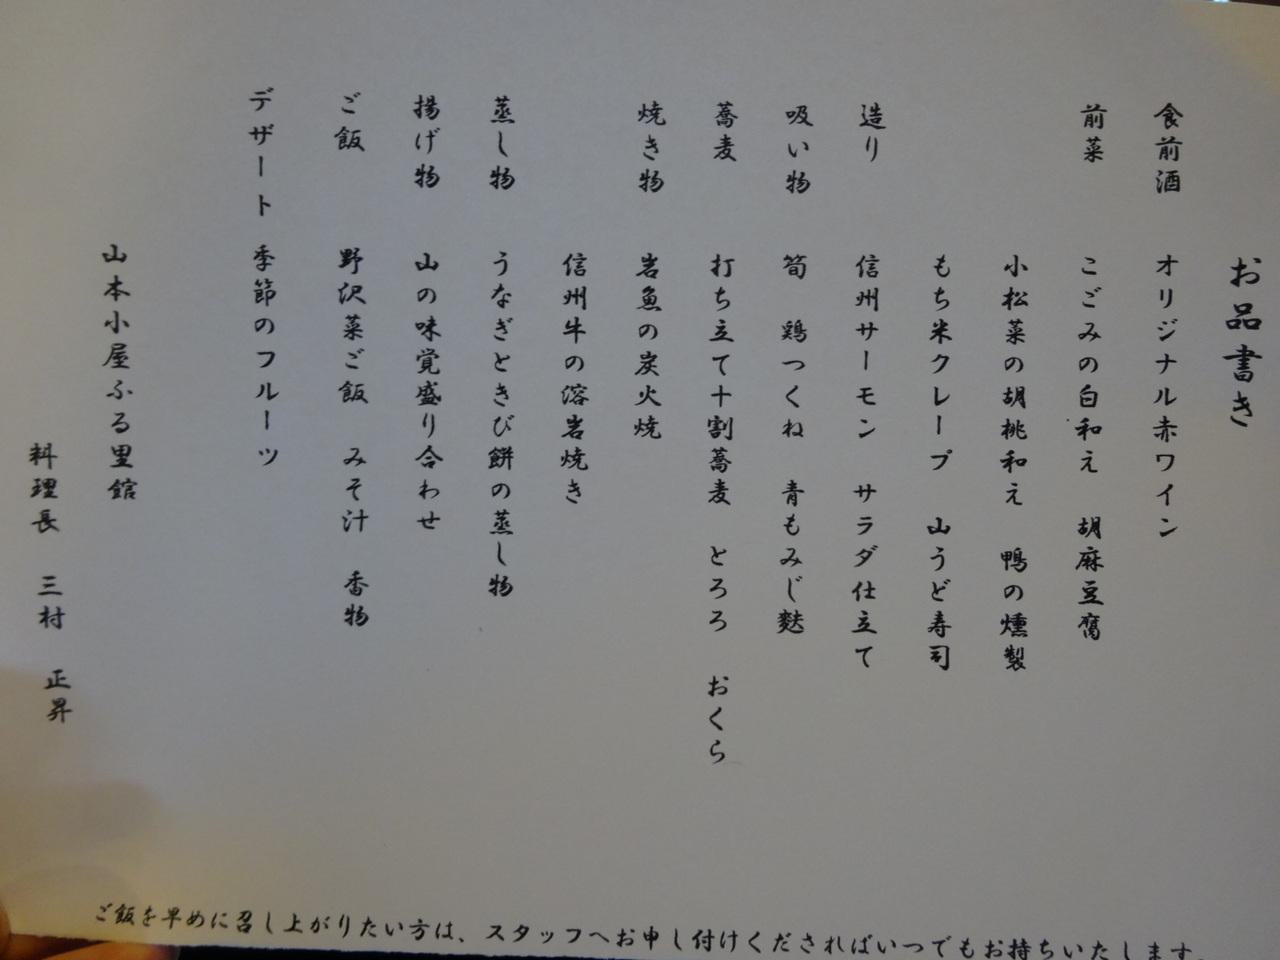 お品書き
食前酒 オリジナル赤ワイン
前菜 こごみの白和え 胡麻豆腐
小松菜の胡桃和え 鴨の燻製
もち米クレープ 山うど寿司
造り 信州サーモン サラダ仕立て
吸い物 筍 鶏つくね 青もみじ麩
蕎麦 打ち立て十割蕎麦 とろろ おくら
焼き物 岩魚の炭火焼
信州牛の溶岩焼き
蒸し物 うなぎときび餅の蒸し物
揚げ物 山の味覚盛り合わせ
ご飯 野沢菜ご飯 みそ汁 香物
デザート 季節のフルーツ
山本小屋ふる里館
料理長 三村 正昇
ご飯を早めに召し上がりたい方は、スタッフへお申し付けくださればいつでもお持ちいたします。